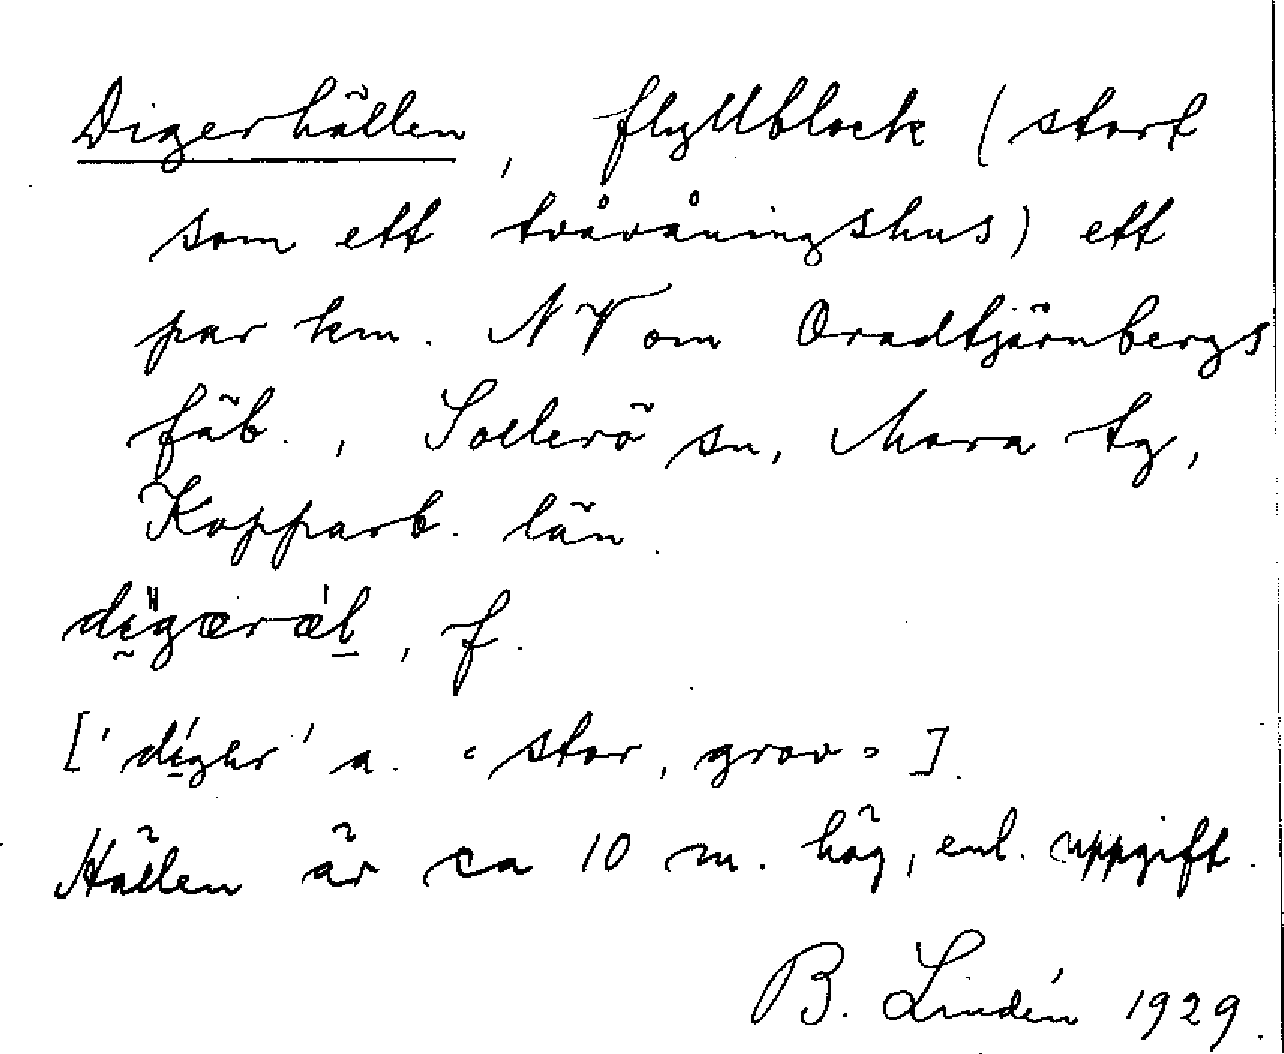 Digerhällen, flyttblock (stort
som ett tvåvåningshus) ett
par km. NV om Oradtjärnbergs
fäb., Sollerö sn, Mora tg,
Kopparb. län.
di̬̋gæræ̍l̠, f.
['díghr' a. «stor, grov»].
Hällen är ca 10 m. hög, enl. uppgift.
B. Lindén 1929.